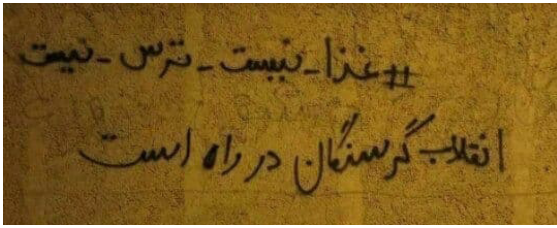 #غذا-نیست-ترس-نیست
انقلاب گرسنگان در راه است